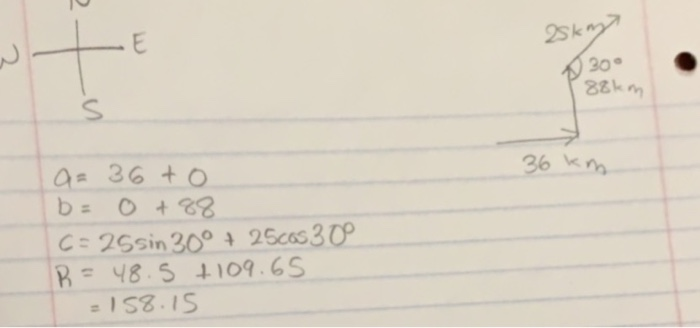 N
W E
S
25km
30°
88km
36 km
a = 36 + 0
b = 0 + 88
C = 25sin30° + 25cos30°
R = 48.5 + 109.65
= 158.15